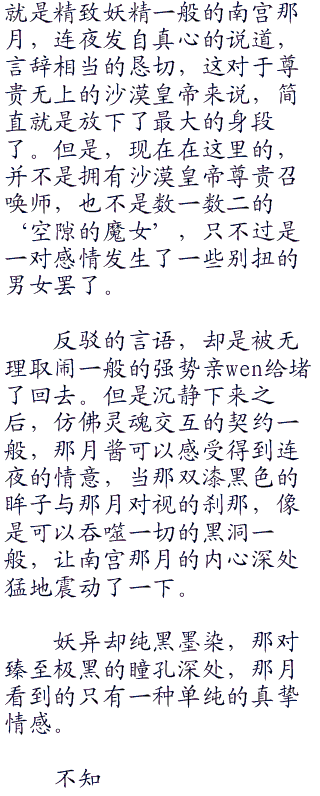 就是精致妖精一般的南宫那
月，连夜发自真心的说道，
言辞相当的恳切，这对于尊
贵无上的沙漠皇帝来说，简
直就是放下了最大的身段
了。但是，现在在这里的，
并不是拥有沙漠皇帝尊贵召
唤师，也不是数一数二的
‘空隙的魔女’，只不过是
一对感情发生了一些别扭的
男女罢了。
反驳的言语，却是被无
理取闹一般的强势亲wen给堵
了回去。但是沉静下来之
后，仿佛灵魂交互的契约一
般，那月酱可以感受得到连
夜的情意，当那双漆黑色的
眸子与那月对视的刹那，像
是可以吞噬一切的黑洞一
般，让南宫那月的内心深处
猛地震动了一下。
妖异却纯黑墨染，那对
臻至极黑的瞳孔深处，那月
看到的只有一种单纯的真挚
情感。
不知